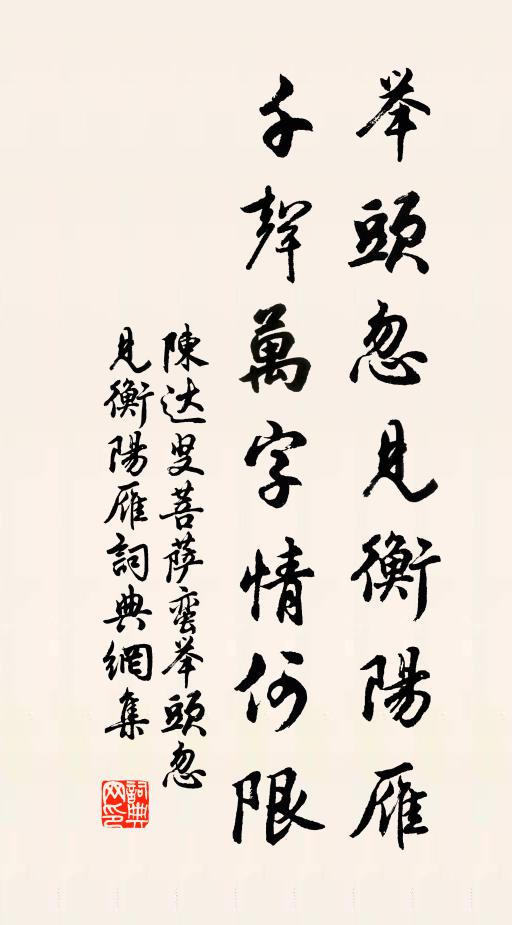 举頭忽見衡陽雁
千聲萬字情何限
陳达叟菩萨蛮举頭忽
見衡陽雁詞典網集
詞典
网印